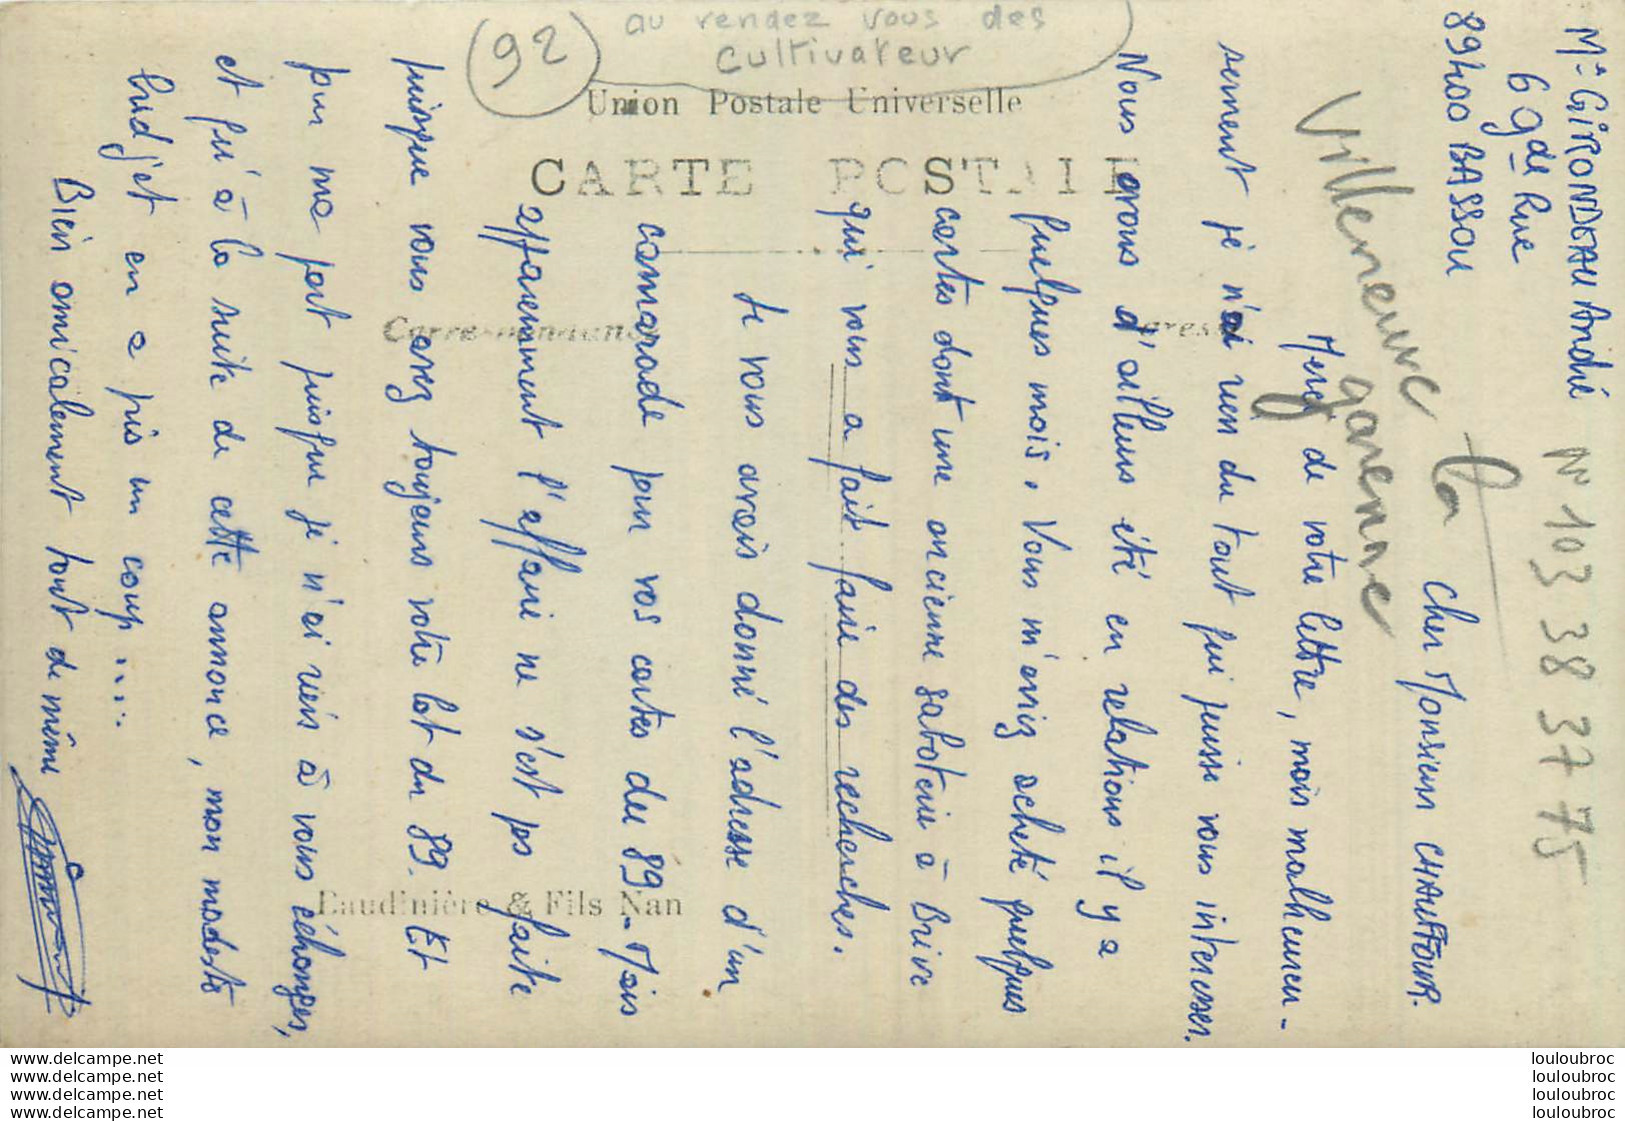 92
au rendez vous des
cultivateur
Union Postale Universelle
CARTE POSTALE
Correspondance
Adresse
Baudinière & Fils Nan
Villeneuve
la
garenne
N° 103 38 37 75
Mr GIRONDEAU André
6 gde Rue
89400 BASSOU
Cher Monsieur CHAUFFOUR.
Merci de votre lettre, mais malheureu-
sement je n'ai rien du tout qui puisse vous interesser.
Nous avons d'ailleurs été en relations il y a
quelques mois, Vous m'aviez acheté quelques
cartes dont une ancienne saboterie à Brive
qui vous a fait faire des recherches.
Je vous avais donné l'adresse d'un
camarade pour vos cartes du 89 - Mais
apparemment l'affaire ne s'est pas faite
puisque vous avez toujours votre lot du 89. Et
pour ma part puisque je n'ai rien à vous échanger,
et qu'à la suite de cette annonce, mon modeste
budjet en a pris un coup .....
Bien amicalement tout de même